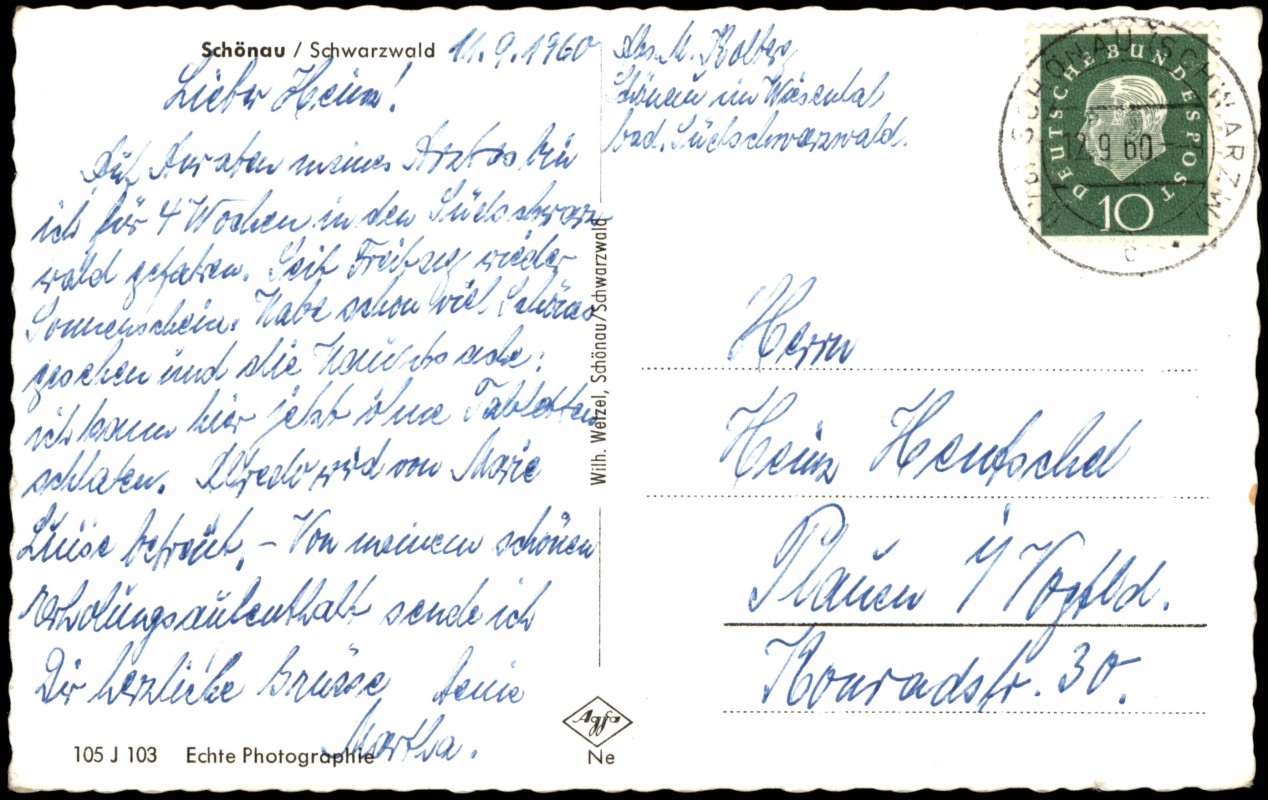 Schönau / Schwarzwald 11.9.1960
Lieber Heinz!
Auf Anraten meines Arztes bin
ich für 4 Wochen in den Südschwarz
wald gefahren. Seit Freitag wieder
Sonnenschein. Habe schon viel Schönes
gesehen und die Hauptsache:
ich kann hier jetzt ohne Tabletten
schlafen. Alfredo wird von Marie
Luise betreut. – Von meinem schönen
Erholungsaufenthalt sende ich
Dir herzliche Grüsse Deine
Martha.
105 J 103 Echte Photographie
Wilh. Wetzel, Schönau/Schwarzwald
Agfa
Ne
Abs. M. Kolberg
Schönau im Wiesental
bad. Südschwarzwald.
DEUTSCHE BUNDESPOST
10
SCHÖNAU (SCHWARZW)
12.9.60
c
Herrn
Heinz Hentschel
Plauen i/Vogtld.
Konradstr. 30.